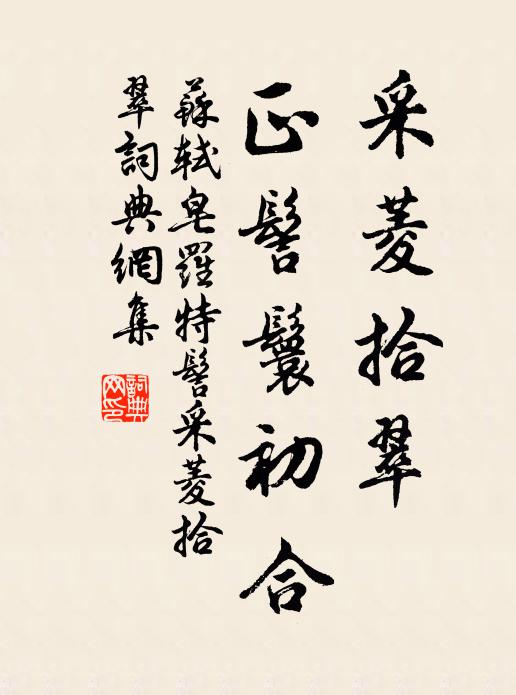 采菱拾翠
正髻鬟初合
蘇軾皂羅特髻采菱拾
翠詞典網集
詞典
网印